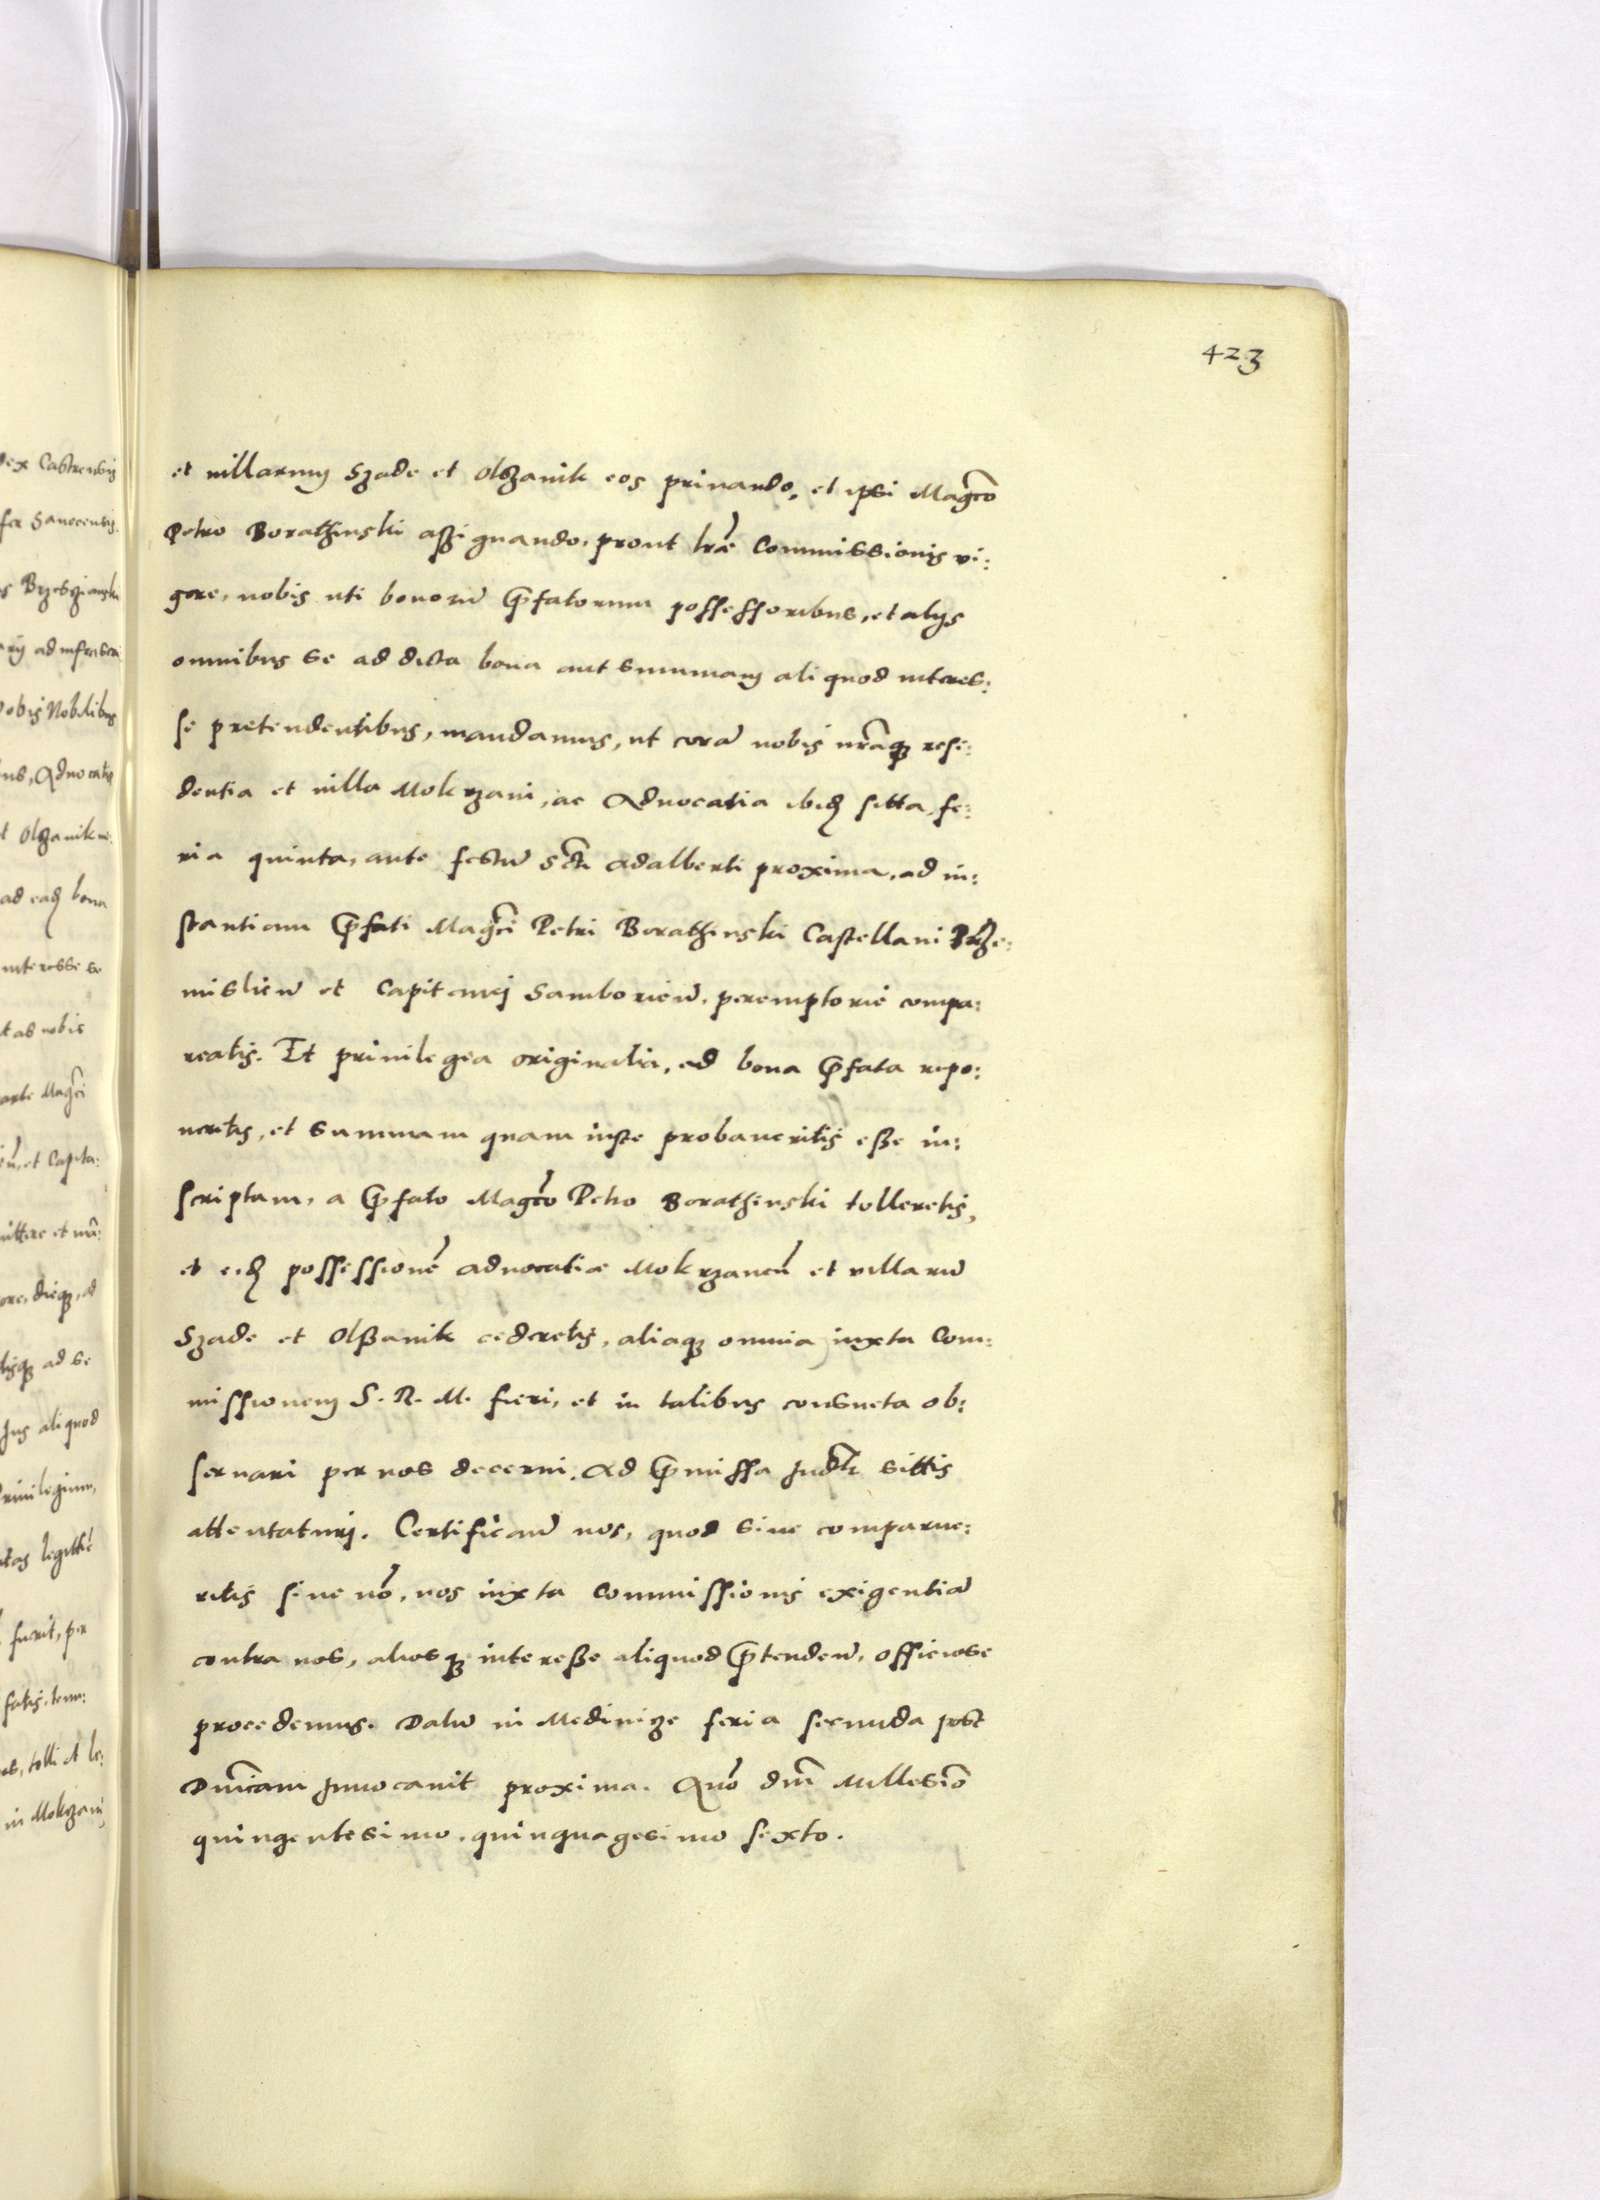 423
et villarum Szade et Olszanik eos privando, et ipsi Magco
Petro Borathinski assignando, prout lrae Commissionis vi:
gore, vobis uti bonorū pfatorum possessoribus, et alijs
omnibus se ad dicta bona aut summam aliquod interes:
se pretendentibus, mandamus, ut corā nobis nrāq resi:
dentia et villa Mokrzani, ac Advocatia ibid sitta, fe:
ria quinta, ante festū Scti Adalberti proxima, ad in:
stantiam pfati Magci Petri Borathinski Castellani Prze:
misliēn et Capitanej Samboriēn, peremptorie compa:
reatis. Et privilegia originalia, ad bona pfata repo:
neretis, et summam quam iuste probaveritis esse in:
scriptam, a pfato Magco Petro Borathinski tolleretis,
et eid possessionē advocatiae Mokrzaneñ et villarū
Szade et Olßanik cederetis, aliaq omnia iuxta Com:
missionem S. R. M. fieri, et in talibus consueta ob:
servari per nos decerni. Ad pmissa Judlr sittis
attentaturj. Certificañ vos, quod sive comparue:
ritis sive nō, nos iuxta Commissionis exigentiā
contra vos, aliosq interesse aliquod ptendeñ, officiose
procedemus. Datū in Medinize feria secunda post
Dnicam Invocavit proxima. Año dni Millesīo
quingentesimo, quinquagesimo sexto.
dex Castrensis
fer Sanocensis
s Brzesziansk
ad infrascri
Nobilibus
us, Advocatis
t Olszanik
ad ead bona
interesse se
t ab nobis
arte Magci
et Capita:
ittere et
ore, dieq, ad
lisq ad se
Jus aliquod
rivilegium,
tas legitti
fuerit, per
fatis, tenu:
es, tolli et le:
in Mokrzani,